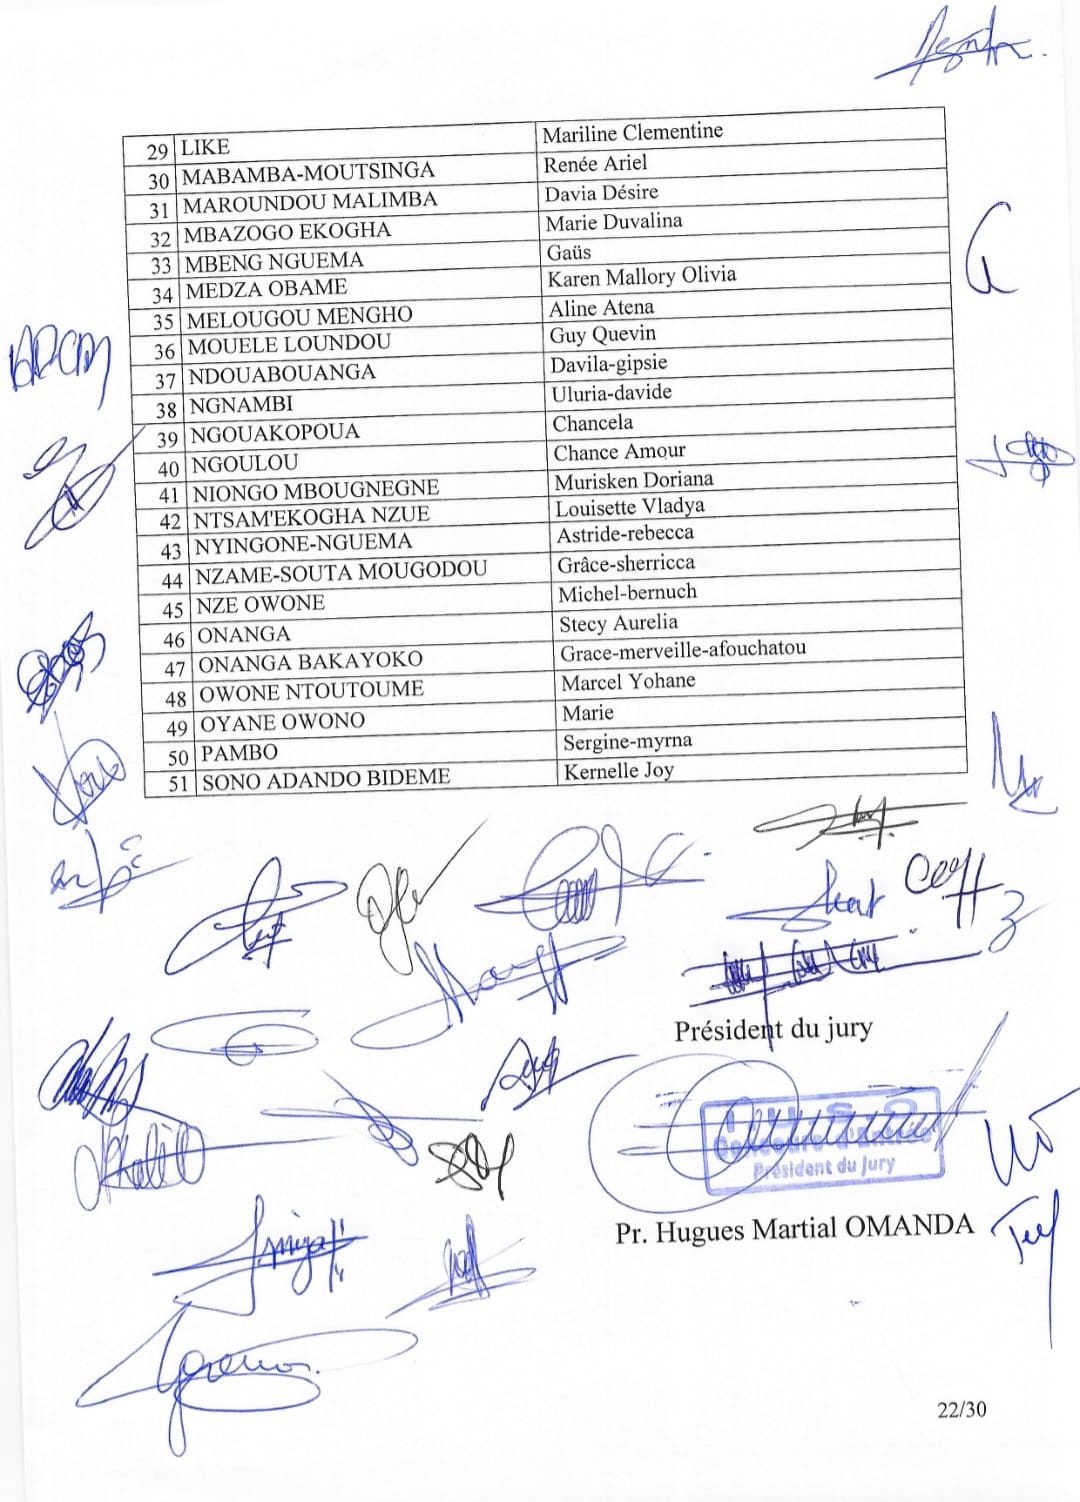 29 LIKE Mariline Clementine
30 MABAMBA-MOUTSINGA Renée Ariel
31 MAROUNDOU MALIMBA Davia Désire
32 MBAZOGO EKOGHA Marie Duvalina
33 MBENG NGUEMA Gaüs
34 MEDZA OBAME Karen Mallory Olivia
35 MELOUGOU MENGHO Aline Atena
36 MOUELE LOUNDOU Guy Quevin
37 NDOUABOUANGA Davila-gipsie
38 NGNAMBI Uluria-davide
39 NGOUAKOPOUA Chancela
40 NGOULOU Chance Amour
41 NIONGO MBOUGNEGNE Murisken Doriana
42 NTSAM'EKOGHA NZUE Louisette Vladya
43 NYINGONE-NGUEMA Astride-rebecca
44 NZAME-SOUTA MOUGODOU Grâce-sherricca
45 NZE OWONE Michel-bernuch
46 ONANGA Stecy Aurelia
47 ONANGA BAKAYOKO Grace-merveille-afouchatou
48 OWONE NTOUTOUME Marcel Yohane
49 OYANE OWONO Marie
50 PAMBO Sergine-myrna
51 SONO ADANDO BIDEME Kernelle Joy
Président du jury
Président du Jury
Pr. Hugues Martial OMANDA
22/30